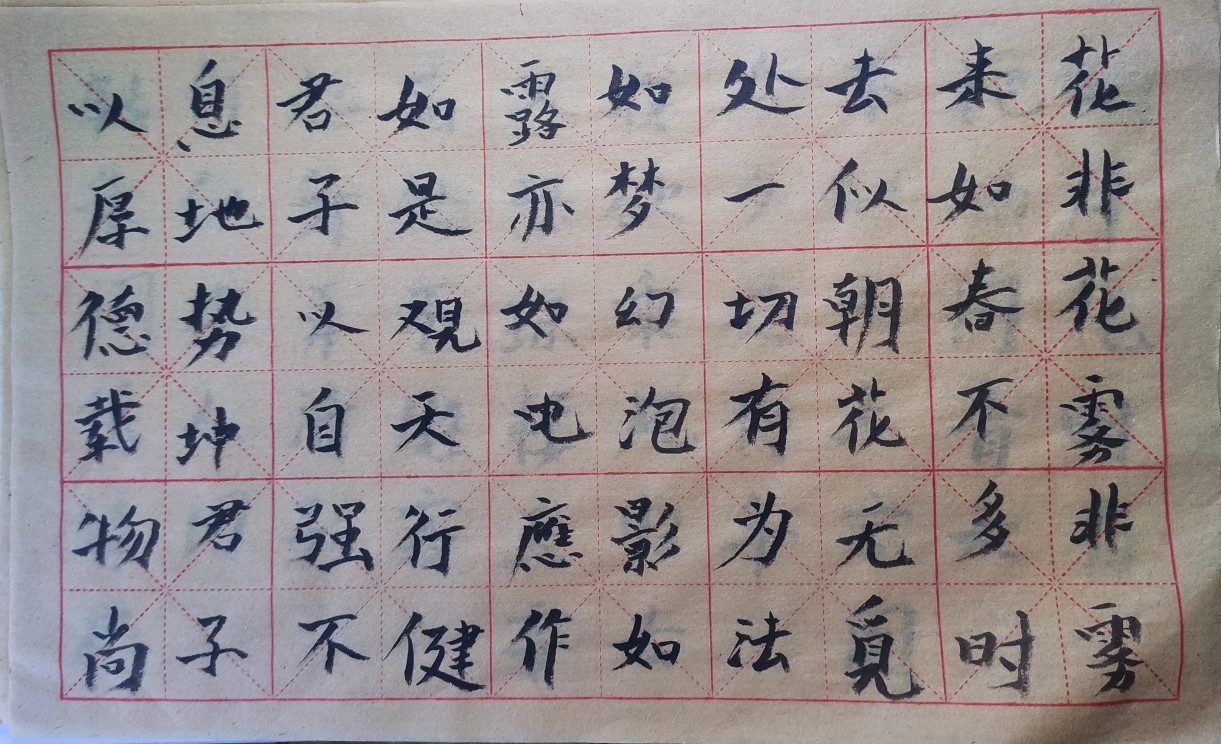 花非花雾非雾
来如春不多时
去似朝花无觅
处一切有为法
如梦幻泡影如
露亦如电應作
如是观天行健
君子以自强不
息地势坤君子
以厚德载物尚